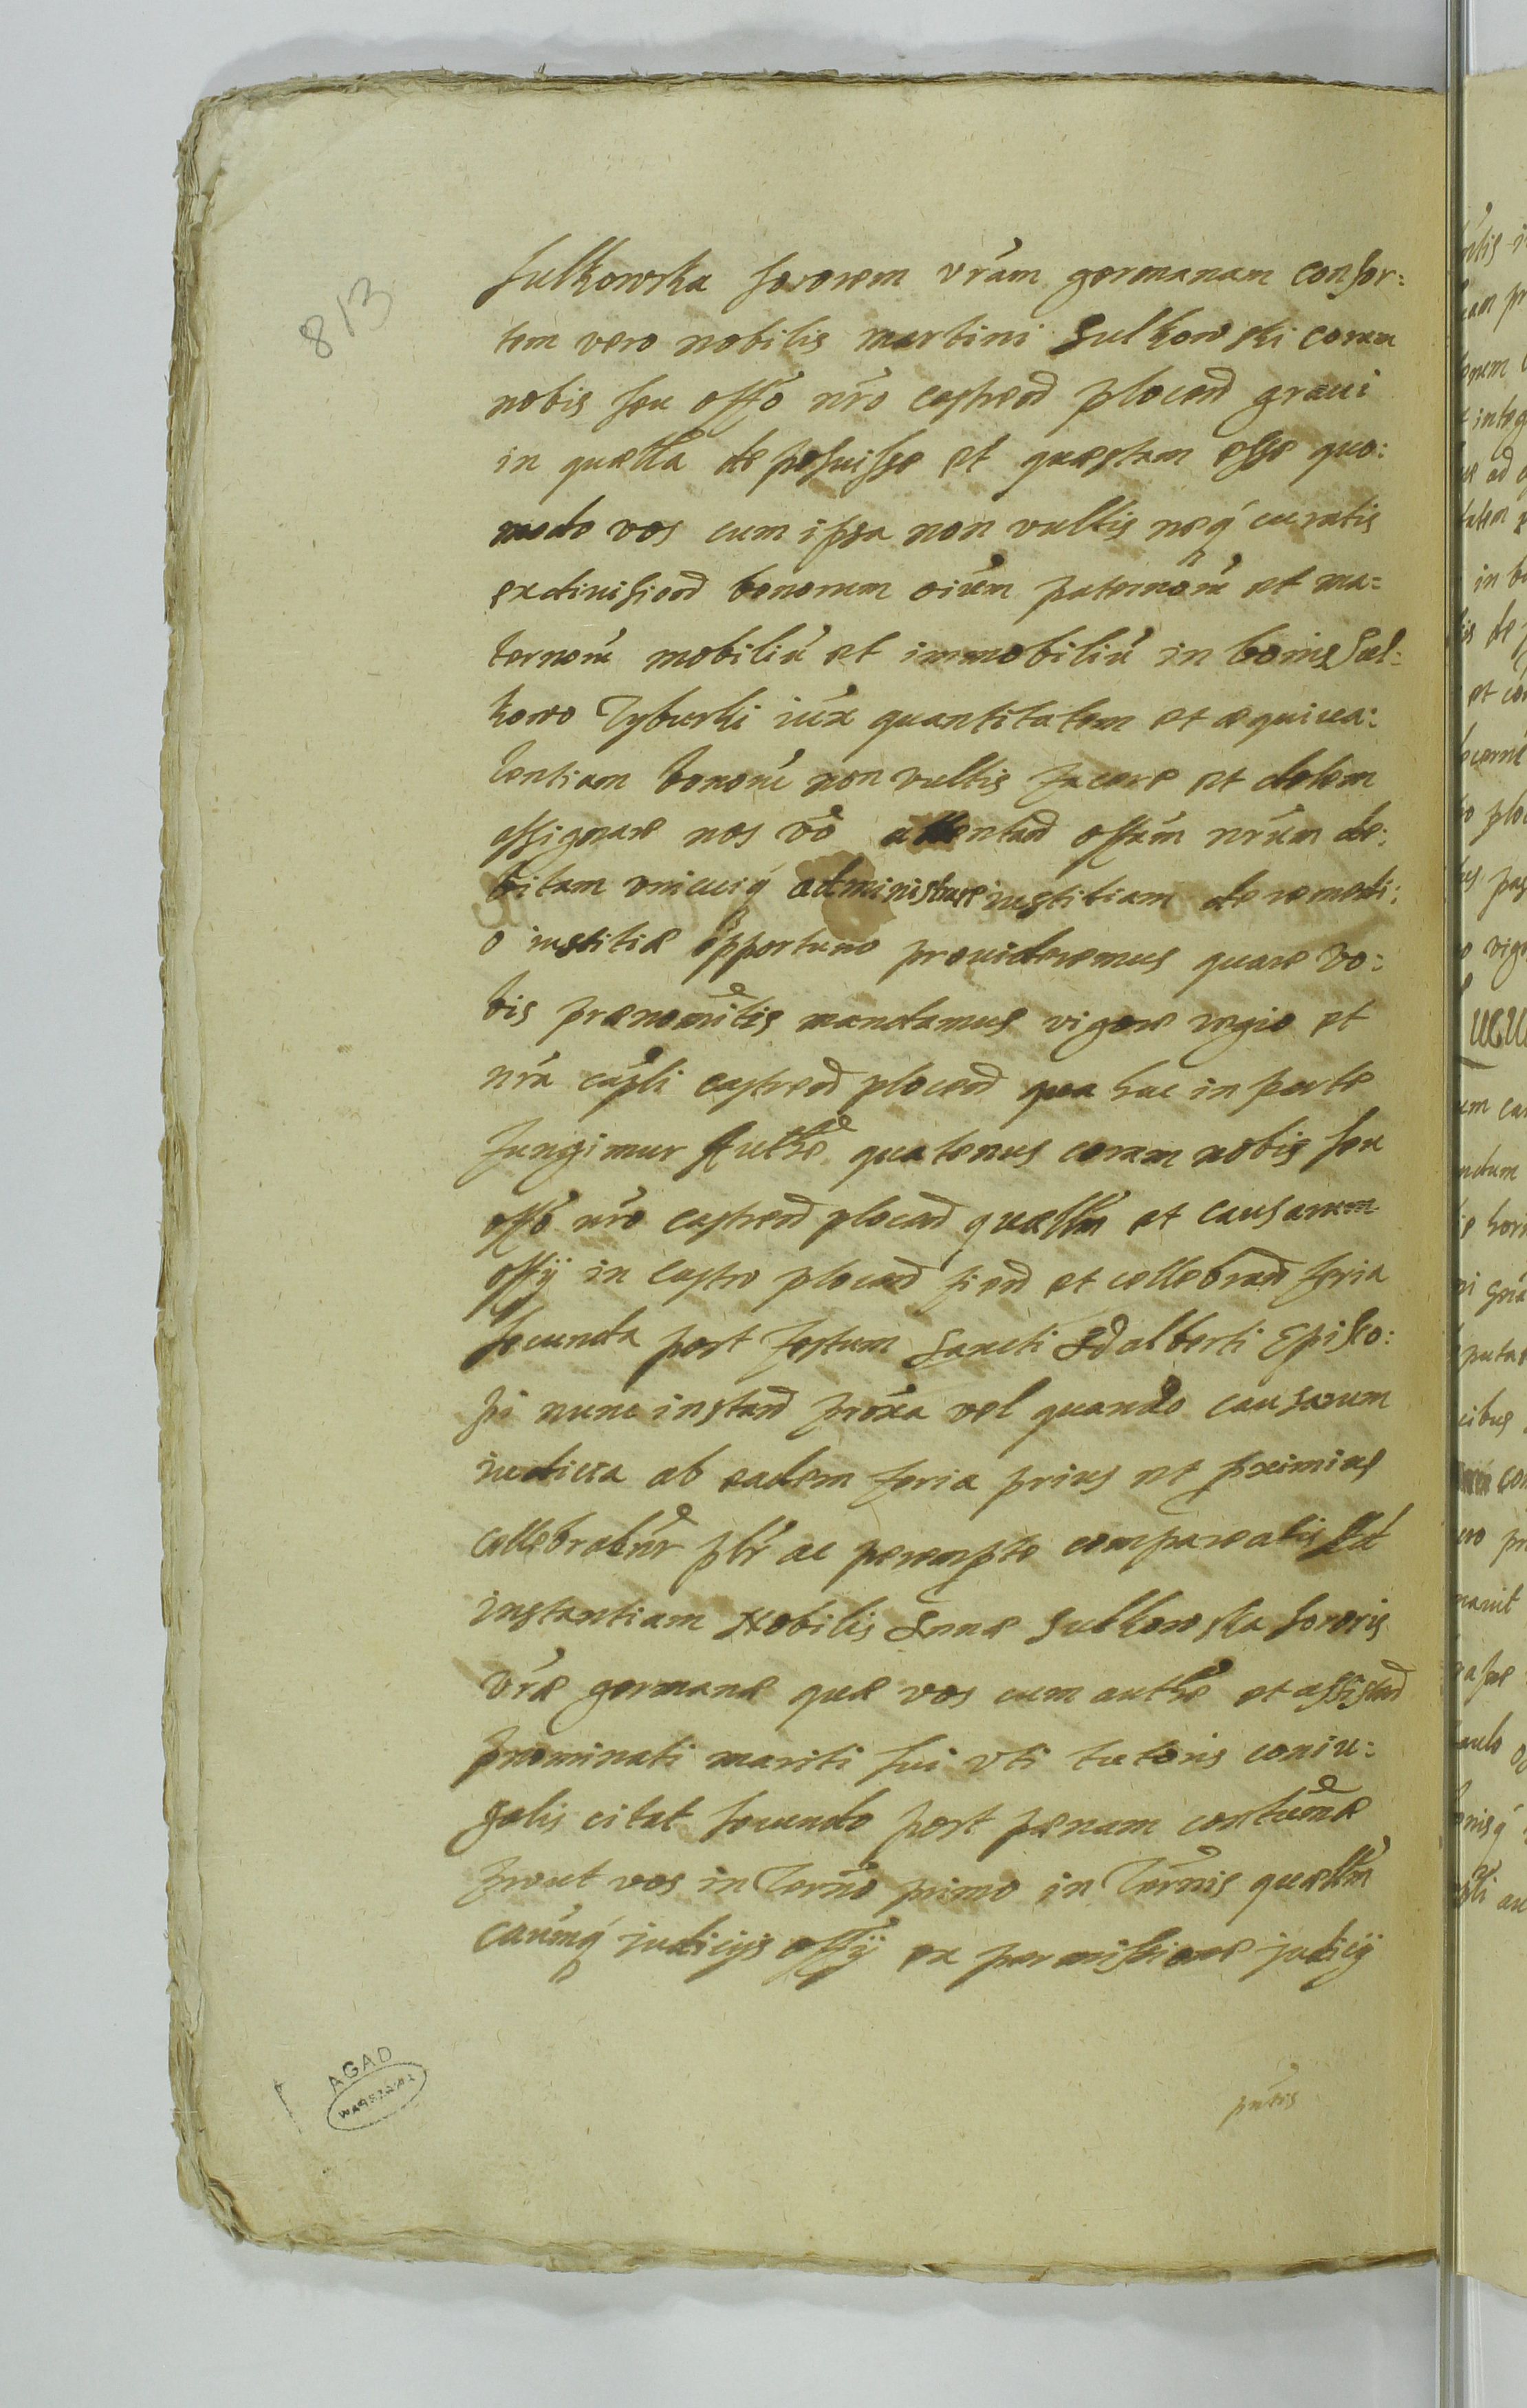 813
Sulkowska sororem vr̃am germanam consor:
tem vero nobilis martini Sulkowski coram
nobis seu offõ nr̃o castren̄ plocen̄ graui
in quælla deposuisse et quæstam esse quo:
modo vos cum ipsa non vultis neq́ curatis
exdiuision̄ bonorum oi͠um paternorú et ma=
ternorú mobiliú et immobiliú in bonis Sul:
kowo Tyburki iux̃a quantitatem et æquiua:
lentiam bonorú non vultis facere et dotem
assignare nos v̊o attenden̄ offi͠m nr̃um de:
bitam vnicuiq́ administrare iustitiam de remedi:
o iustitiæ opportuno prouideremus quare vo:
bis prænomi͠tis mandamus vigore regio et
nr̃a cap̃li castren̄ plocen̄ qua hac in parte
fungimur Auth͠e quatenus coram nobis seu
offõ nr̃o castren̄ plocen̄ quæll̃m et causarum
offÿ in castro plocen̄ fien̄ et cellebran̄ feria
secunda post festum Sancti Adalberti Episco:
pi nunc instan̄ prox̃a vel quando causarum
iudicia ab eadem feria prius et pximius
cellebrabu͠r pl̃r ac perempte compareatis Ad
instantiam Nobilis Annæ Sulkowska sororis
vr̃æ germanæ quæ vos cum auth͠e et assisten̄
pnominati mariti sui vti tutoris coniu:
galis citat secundo post pænam contum̃æ
prout vos in Ter͠no primo in Ter͠nis quæll̃m
cau͠mq́ iudicijs offÿ ex permissione judicÿ
pn͠tis
AGAD
WARSZAWA